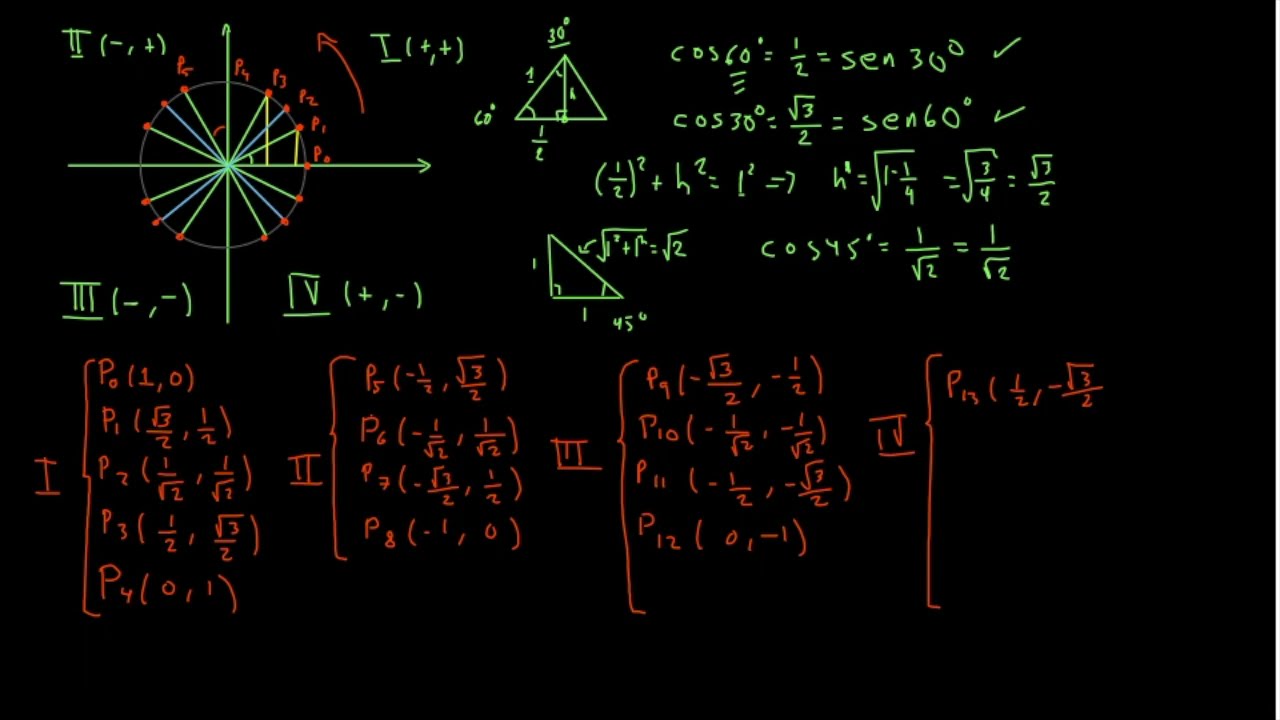 II (-, +)
I (+,+)
P₅ P₄ P₃
P₂
P₁
P₀
III (-, -)
IV (+, -)
30°
1
h
60°
1/2
cos60° = 1/2 = sen 30° ✓
cos30° = √3/2 = sen60° ✓
(1/2)² + h² = 1² => h = √(1-1/4) = √(3/4) = √3/2
√(1²+1²) = √2
1
1
45°
cos45° = 1/√2 = 1/√2
I
P₀ (1, 0)
P₁ (√3/2, 1/2)
P₂ (1/√2, 1/√2)
P₃ (1/2, √3/2)
P₄ (0, 1)
II
P₅ (-1/2, √3/2)
P₆ (-1/√2, 1/√2)
P₇ (-√3/2, 1/2)
P₈ (-1, 0)
III
P₉ (-√3/2, -1/2)
P₁₀ (-1/√2, -1/√2)
P₁₁ (-1/2, -√3/2)
P₁₂ (0, -1)
IV
P₁₃ (1/2, -√3/2